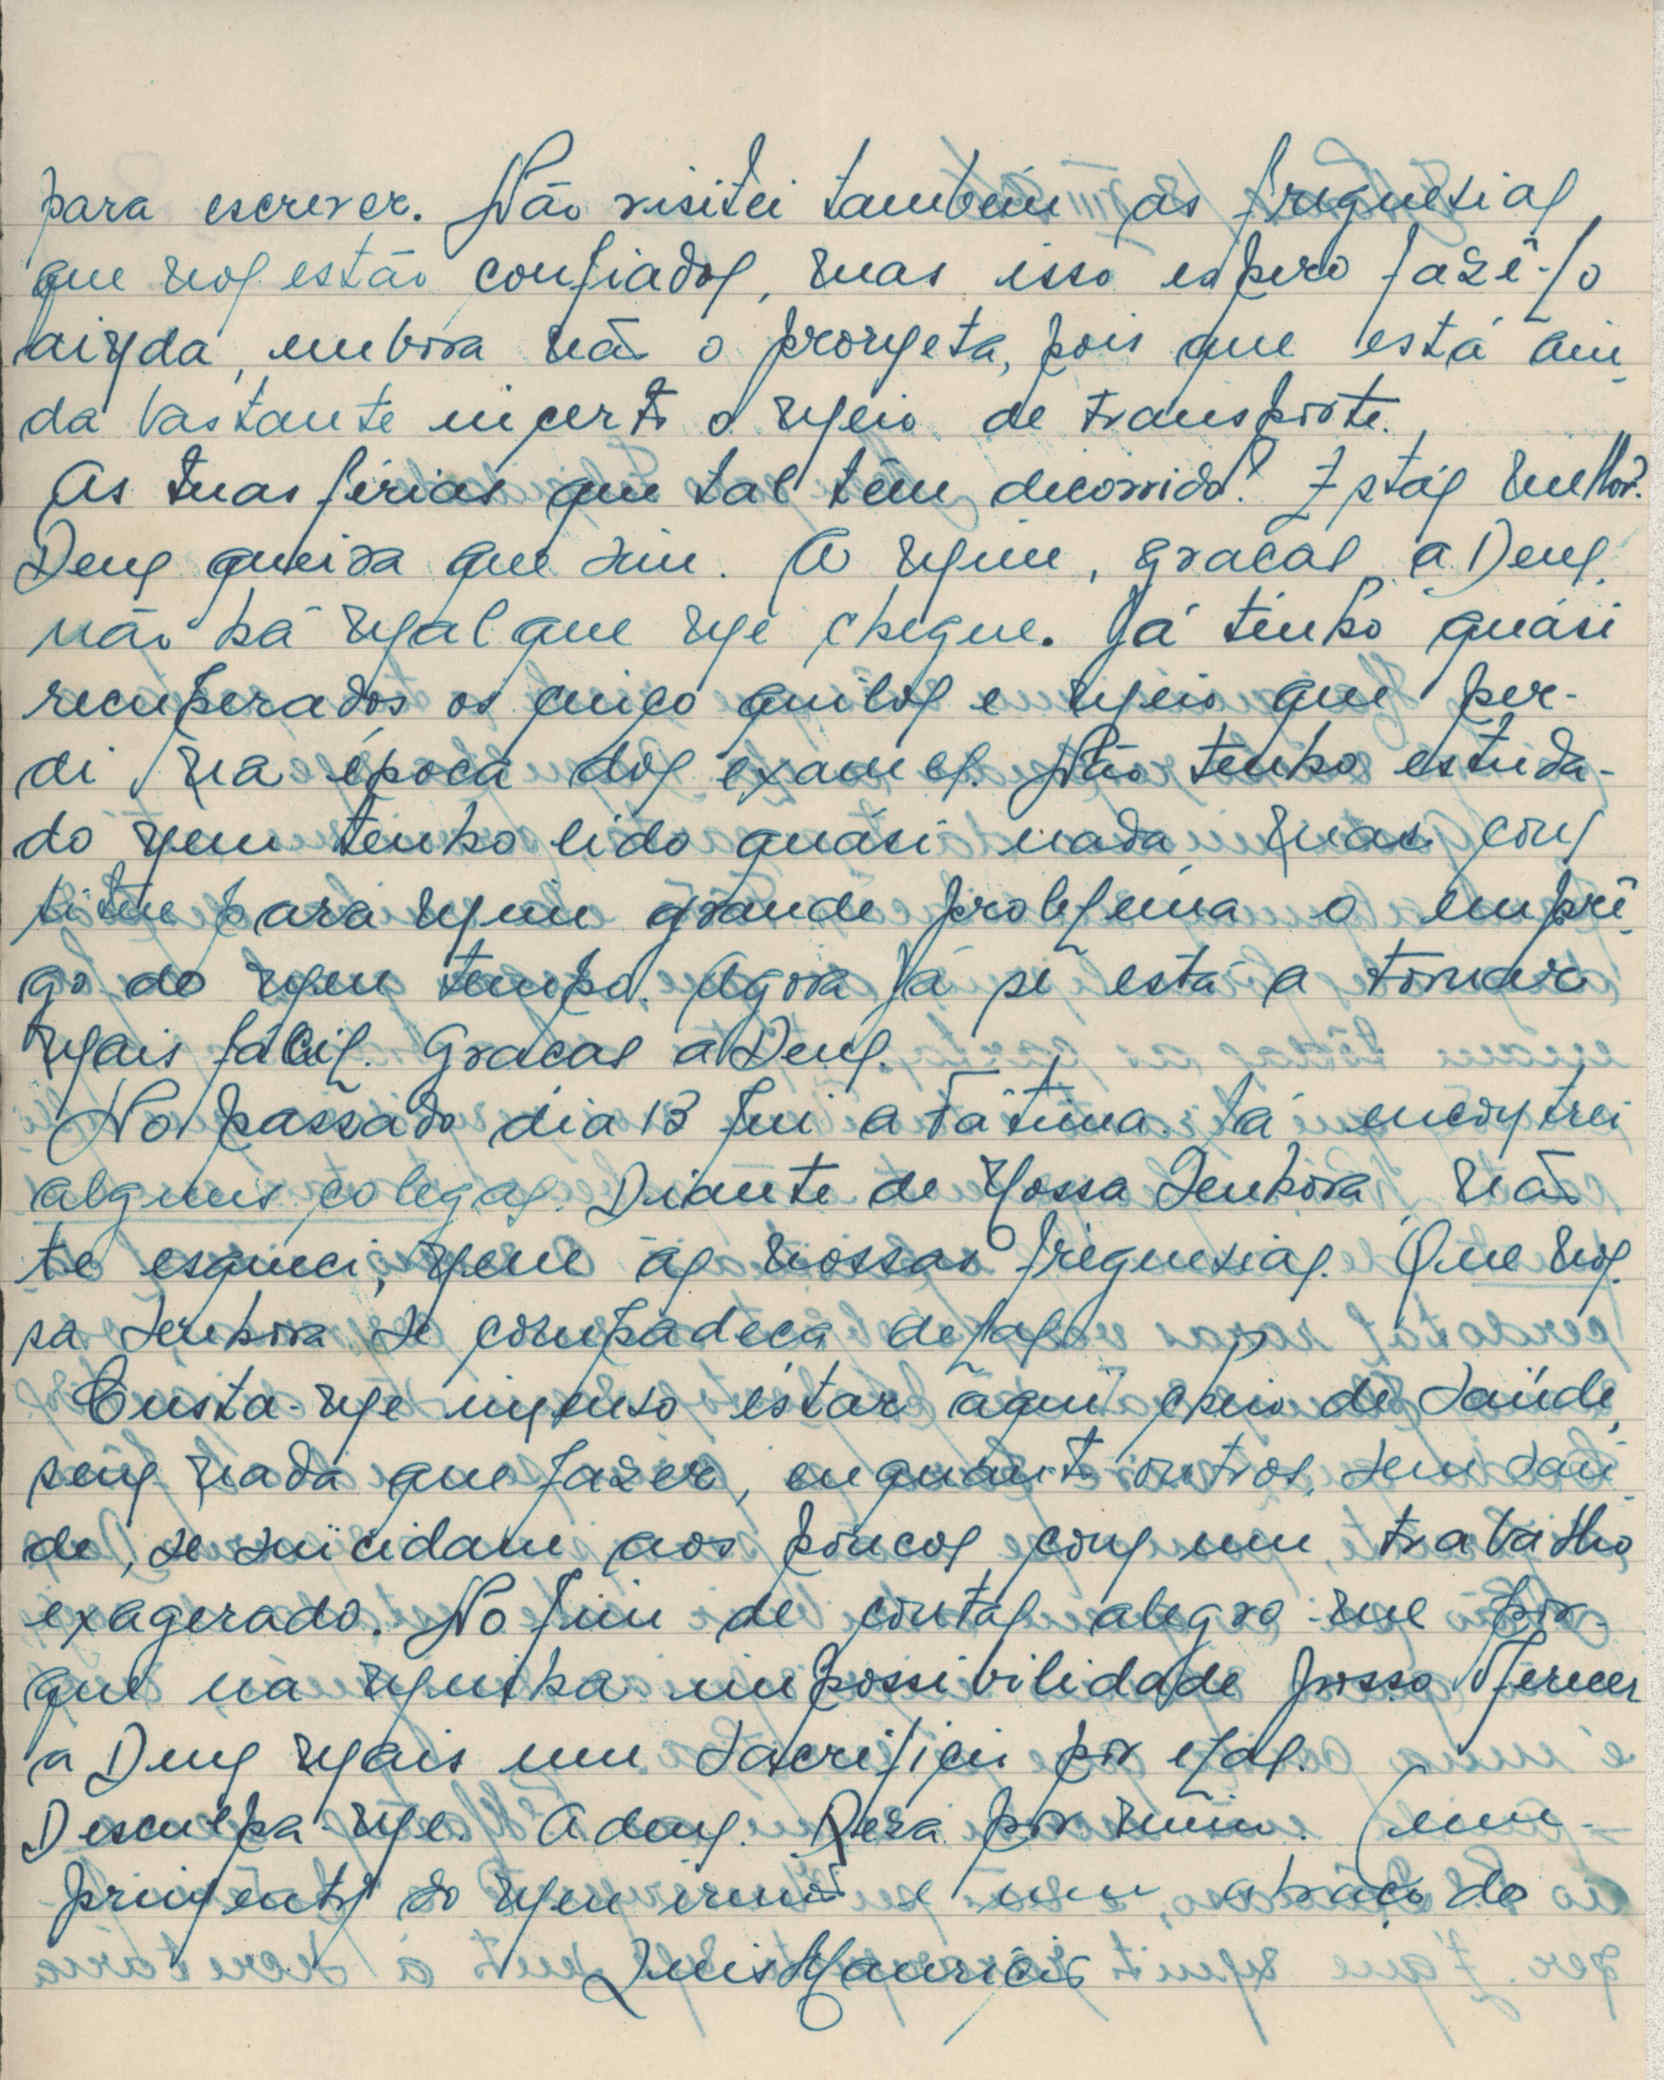 para escrever. Não visitei também as freguesias
que nos estão confiados, mas isso espero fazê-lo
ainda, embora não o prometa, pois que está ain-
da bastante incerto o meio de transporte.
As tuas férias que tal têm decorrido? Estás melhor?
Deus queira que sim. A mim, graças a Deus
não há mal que me chegue. Já tenho quási
recuperados os cinco quilos e meio que per-
di na época dos exames. Não tenho estuda-
do nem tenho lido quási nada, mas cons
titue para mim grande problema o emprê-
go do meu tempo. Agora já se está a tornar
mais fácil. Graças a Deus.
No passado dia 13 fui a Fátima. Lá encontrei
alguns colegas. Diante de Nossa Senhora não
te esqueci, nem as nossas freguesias. Que Nos
sa Senhora se compadeça delas.
Custa-me imenso estar aqui cheio de saúde,
sem nada que fazer, enquanto outros, sem saú
de, se suicidam aos poucos com um trabalho
exagerado. No fim de contas alegro-me por-
que na minha impossibilidade posso oferecer
a Deus mais um sacrifício por elas.
Desculpa-me. Adeus. Reza por mim. Cum-
primentos do meu irmão e um abraço do
Luis Mauricio